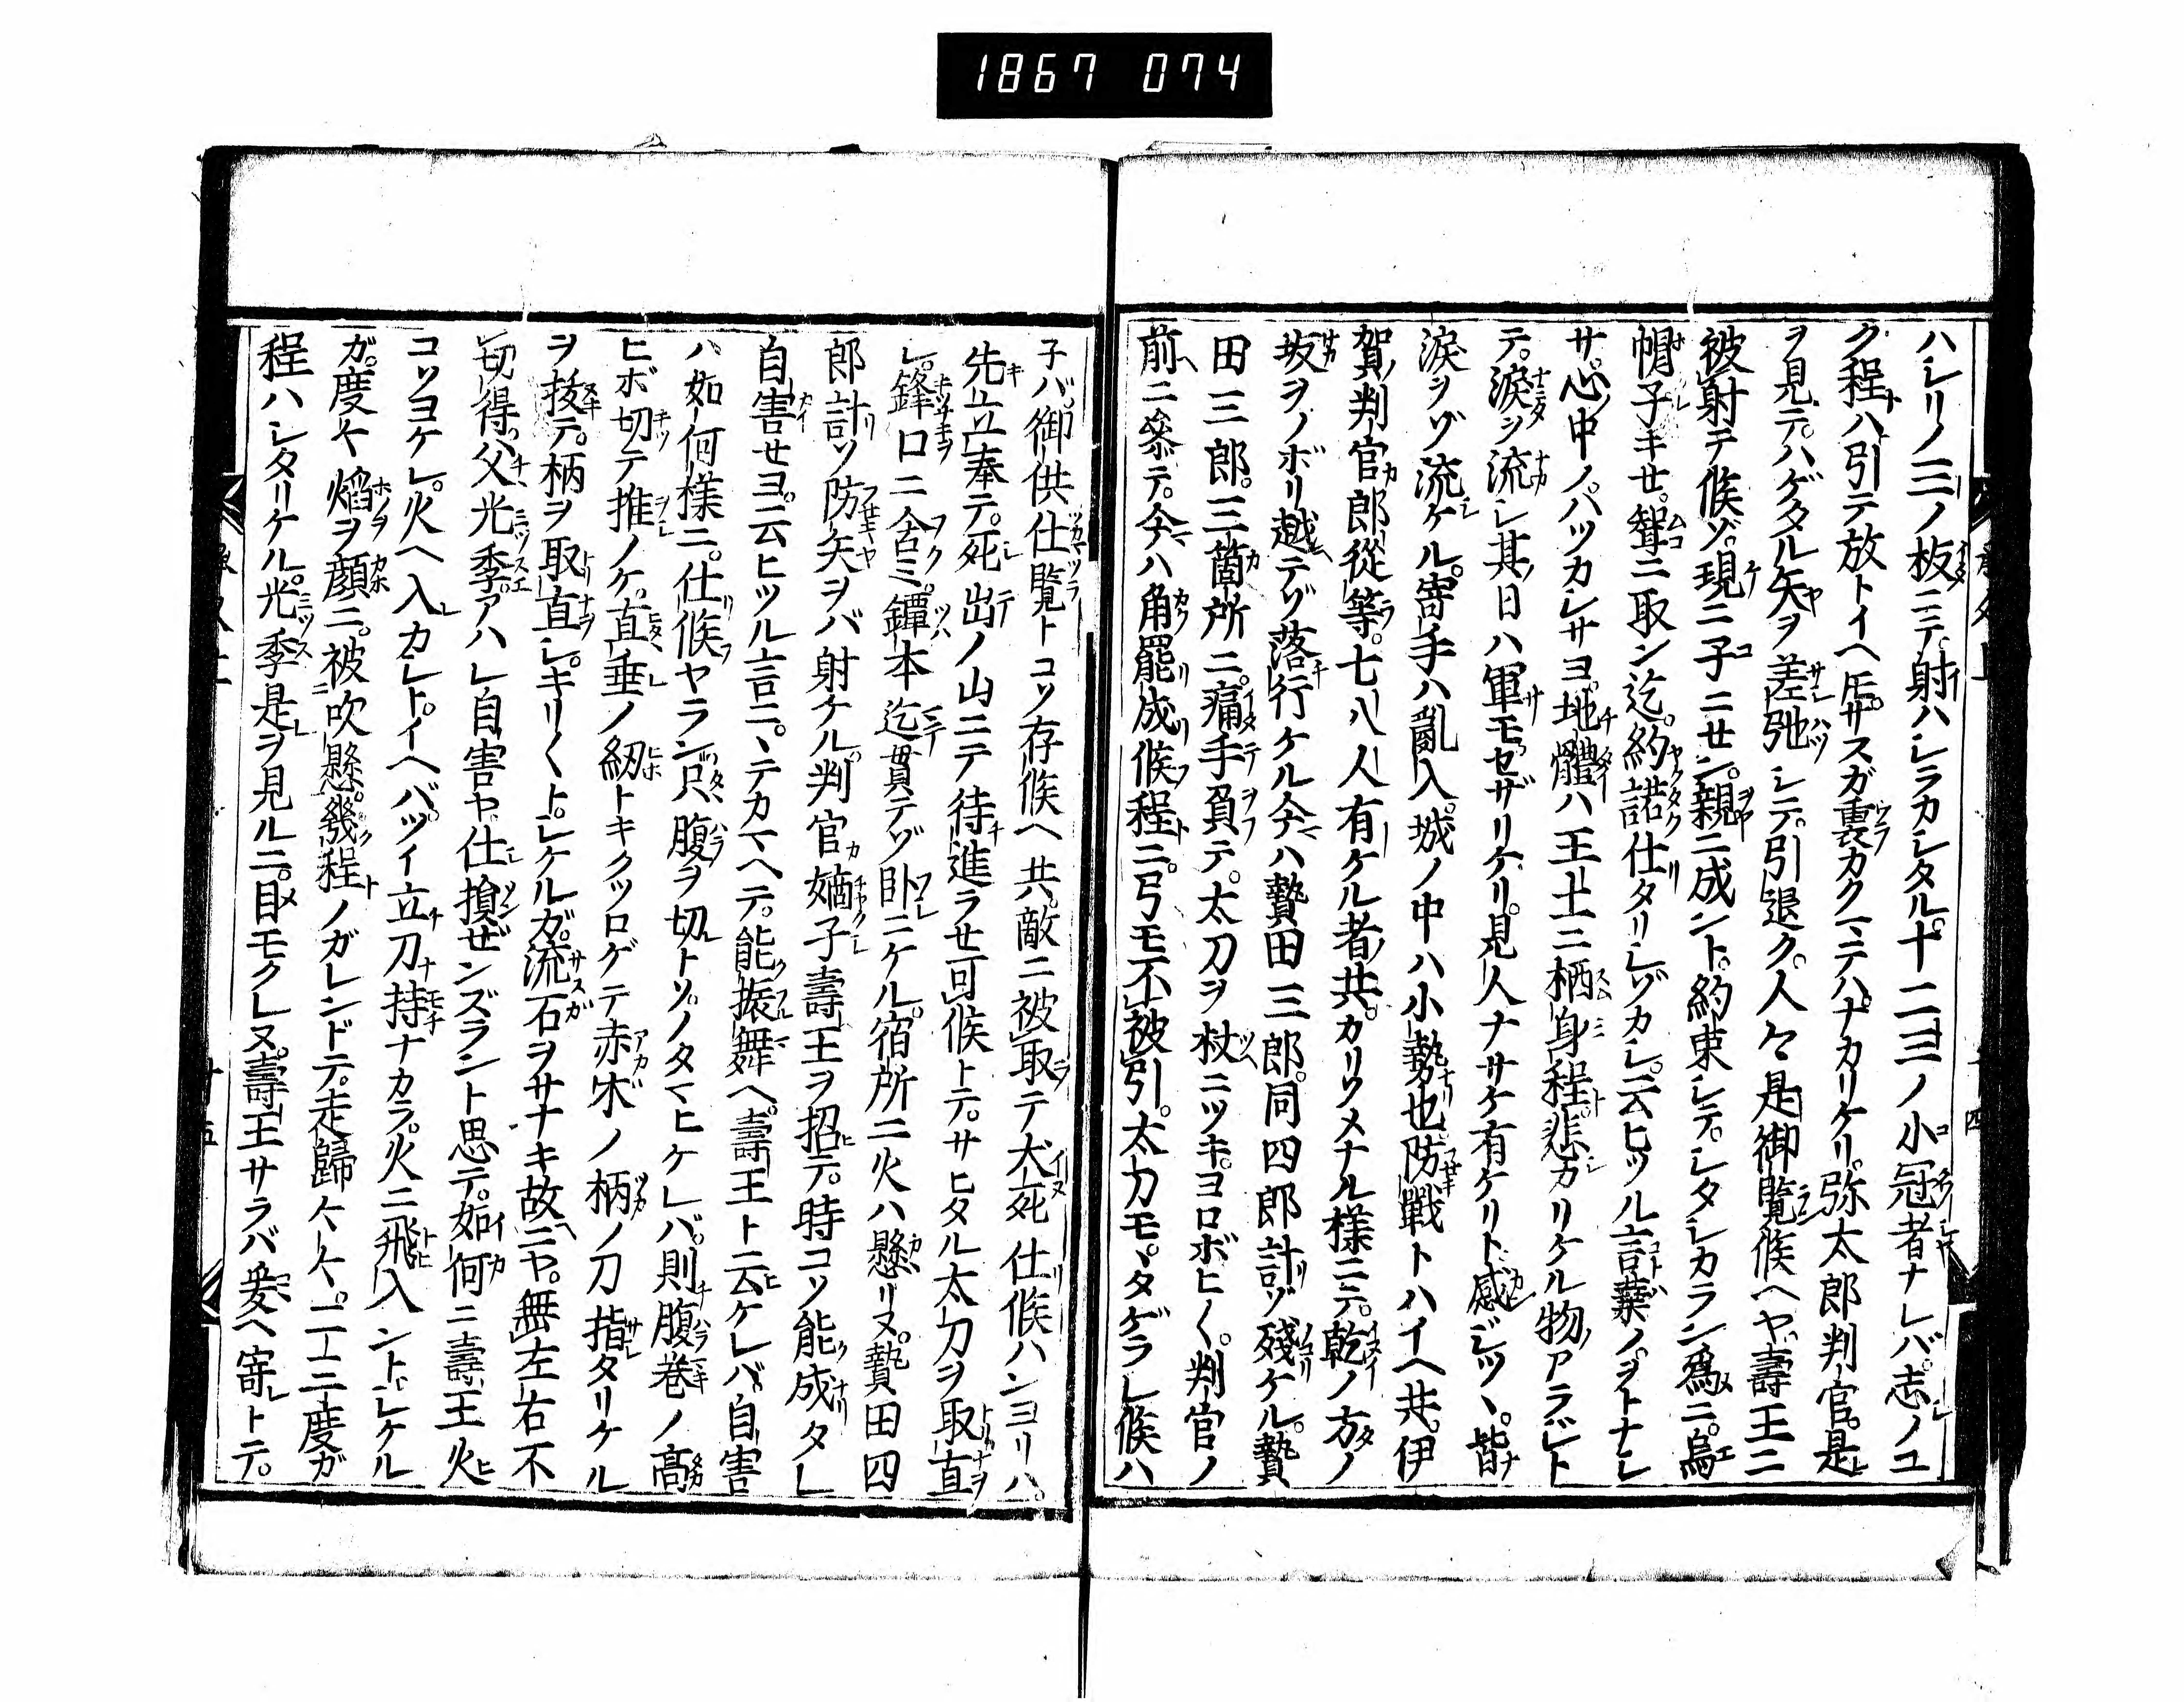 1867 074
ハシリノ三ノ板ニテ。射ハシラカシタル。十二三ノ小冠者ナレバ。志ノユ
ク程ハ引テ放トイヘ𪜈。サスガ裏カクマテハナカリケリ。弥太郎判官。是
ヲ見テ。ハゲタル矢ヲ差弛シテ。引退ク。人々是御覧候ヘヤ。壽王ニ
被射テ候ゾ。現ニ子ニセン。親ニ成ント。約束シテ。シタシカラン爲ニ。烏
帽子キせ。聟ニ取ン迄。約諾仕タリシゾカシ。云ヒツル言葉ノ。ヲトナシ
サ。心中ノ。ハツカシサヨ。地體ハ王土ニ栖身程。悲カリケル物アラジト
テ。淚ヲ流シ。其日ハ軍モセザリケリ。見人ナサケ有ケリト。感ジツヽ。皆
淚ヲゾ流ケル。寄手ハ亂入。城ノ中ハ小勢也。防戰トハイヘ共。伊
賀判官郎從等。七八人有ケル者共。カリソメナル様ニテ。乾ノ方ノ
坂ヲノボリ越テゾ落行ケル。今ハ贄田三郎。同四郎計ゾ殘ケル。贄
田三郎。三箇所ニ。痛手負テ。太刀ヲ杖ニツキ。ヨロボヒ〳〵。判官ノ
前ニ參テ。今ハ角罷成候程ニ。弓モ不被引。太刀モ。タゲラレ候ハ
子バ。御供仕覽トコソ存候ヘ共。敵ニ被取テ犬死仕候ハンヨリハ。
先立奉テ。死出ノ山ニテ待進ラせ可候トテ。サヒタル太刀ヲ取直
シ。鋒口ニ含ミ。鐔本迄貫テゾ臥ニケル。宿所ニ火ハ懸リヌ。贄田四
郎計ソ防矢ヲバ射ケル。判官嫡子壽王ヲ招テ。時コソ能成タレ
自害せヨ。云ヒツル言ニ。ヽテカマヘテ。能振舞ヘ。壽王ト云ケレバ。自害
ハ如何樣ニ。仕候ヤラン。只腹ヲ切トソ。ノタマヒケレバ。則腹卷ノ高
ヒボ切テ推ノケ。直垂ノ紐トキクツロゲテ赤木ノ柄ノ刀指タリケル
ヲ拔テ。柄ヲ取直シ。キリ〳〵ト。シケルガ。流石ヲサナキ故ニヤ。無左右不
切得。父光季。アハレ自害ヤ。仕損ぜンズラント思テ。如何ニ壽王火
コソヨケレ。火ヘ入カシト。イヘバ。ツイ立刀持ナカラ。火ニ飛入ントシケル
ガ。度々焰ヲ顔ニ。被吹懸。幾程ノガレンドテ。走歸ヘ〳〵。二三度ガ
程ハシタリケル。光季是ヲ見ルニ。目モクレヌ。壽王サラバ爰ヘ寄トテ。